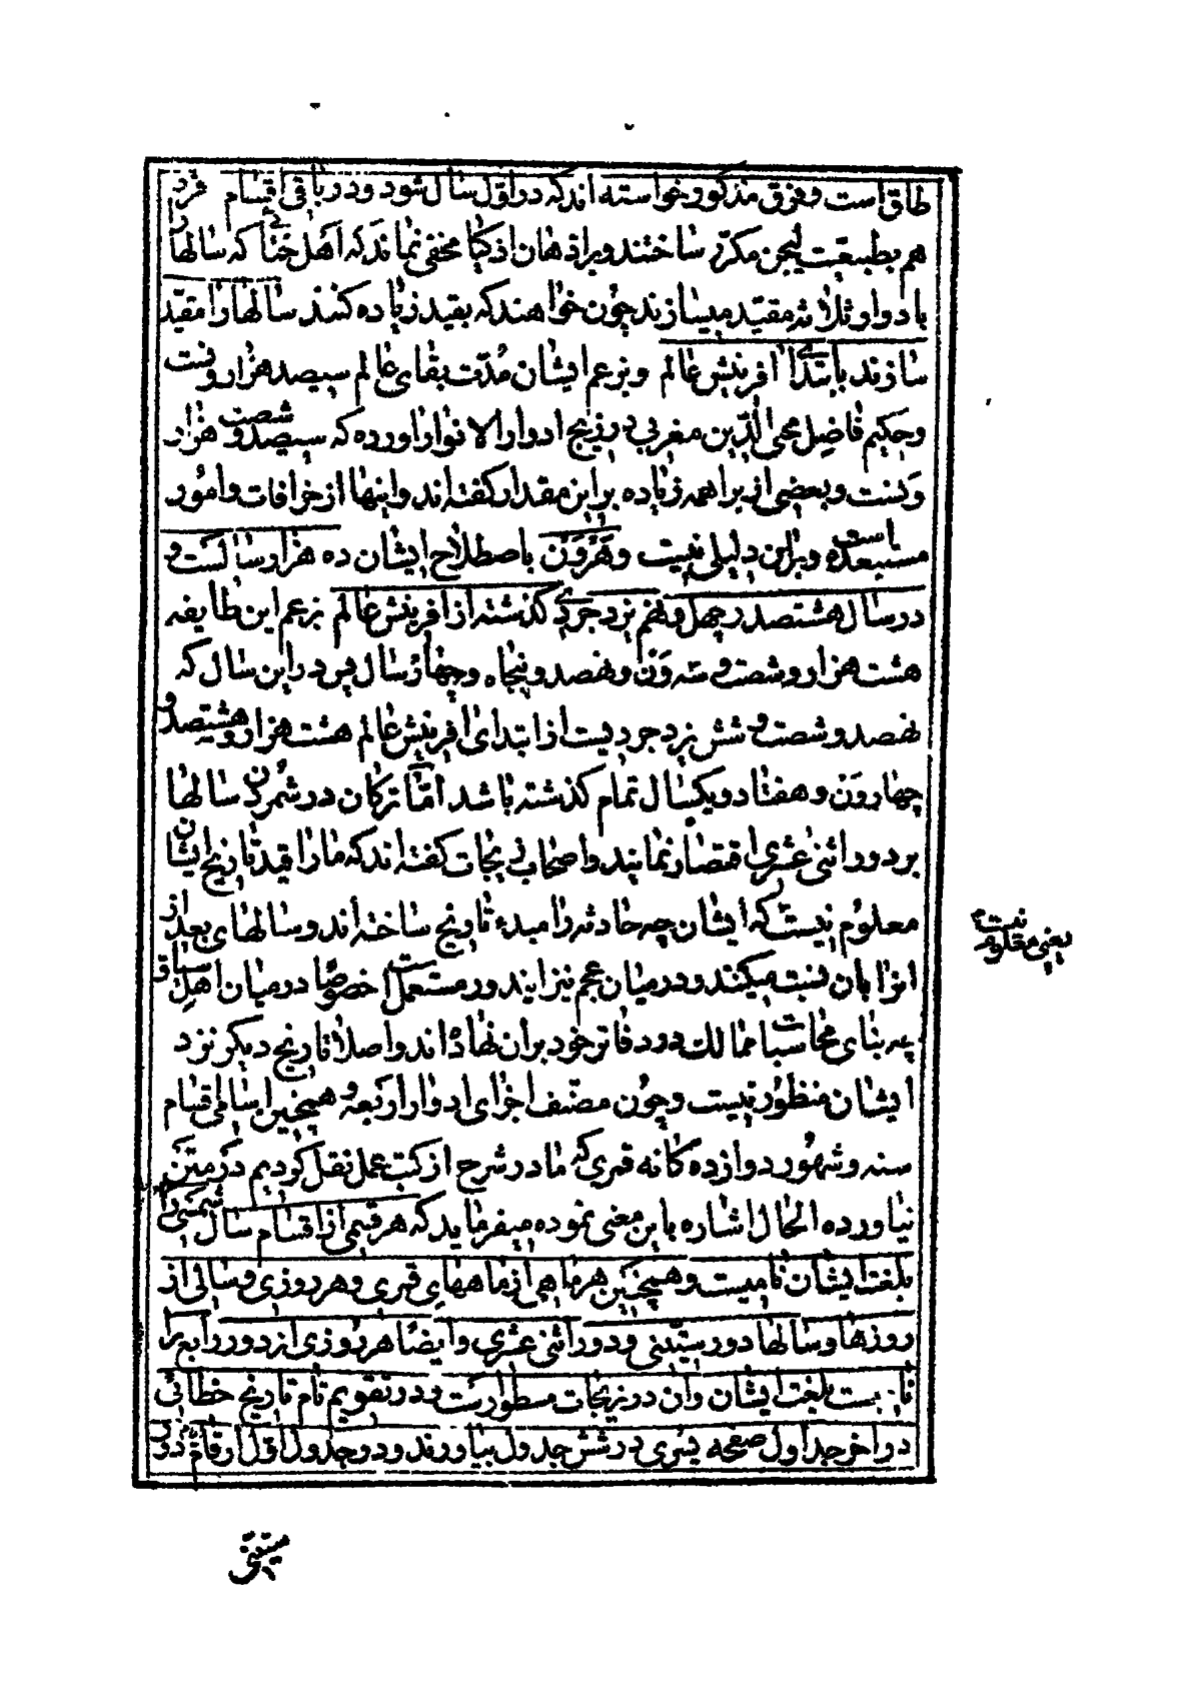 طاق است و فرق مذکور خواسته اند که در اول سال شود و در باقی اقسام فرد
هم بطبیعت لیجن مکرر ساختند و بر اذهان اذکیا مخفی نماند که اهل ختای که سالها را
بادوار ثلاثه مقید میسازند چون خواهند که بقید زیاده کنند سالها را مقید
سازند بابتدای افرینش عالم و بزعم ایشان مدت بقای عالم سیصد هزار ونست
و حکیم فاضل محی الدین مغربی در زیج ادوار الانوار اورده که سیصد و شصت هزار
ونست و بعضی از براهمه زیاده بر این مقدار کفته اند و اینها از خرافات و امور
مستبعده است و براین دلیلی نیست و هَر وَن باصطلاح ایشان ده هزار سالست و
در سال هشتصد و چهل و نهم یزدجردی کذشته از افرینش عالم بزعم این طایفه
هشت هزار و شصت و سه وَن و نهصد و پنجاه و چهار سال پس در این سال که
نهصد و شصت و شش یزدجردیست از ابتدای افرینش عالم هشت هزار و هشتصد و
چهار وَن و هفتاد و یکسال تمام کذشته باشد امّا ترکان در شمردن سالها
بر دور اثنی عشری اقتصار نمایند و اصحاب زیجات کفته اند که ما را قید تاریخ ایشان
معلوم نیست که ایشان چه حادثه را مبدء تاریخ ساخته اند و سالهای بعد از
انرا بان نسبت میکنند و در میان عجم نیز ایندور مستعمل است خصوصا در میان اهل سیاق
چه بنای محاسبات ممالک در دفاتر خود بران نهاده اند و اصلا تاریخ دیکر نزد
ایشان منظور نیست و چون مصنف اجزای ادوار اربعه و همچنین اسامی اقسام
سنه و شهور دوازده کانه قمری که ما در شرح از کتب عمل نقل کردیم در متن
نیاورده الحال اشاره باین معنی نموده میفرماید که هر قسمی از اقسام سال شمسی را
بلغت ایشان نامیست و همچنین هر ماهی از ماههای قمری و هر روزی و سالی از
روزها و سالها دور ستینی و دور اثنی عشری و ایضا هر روزی از دور رابع را
نامیست بلغت ایشان و آن در زیجات مسطور است و در تقویم نام تاریخ خطائی
در اخر جداول صفحه یسری در شش جدول بیاورند و در جدول اول ارقام دور
ستینی
یعنی معلوم نیست